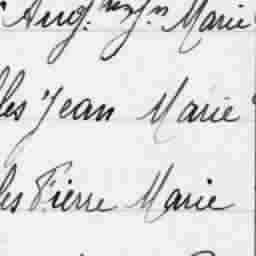 Aug. Marie
les Jean Marie
les Pierre Marie